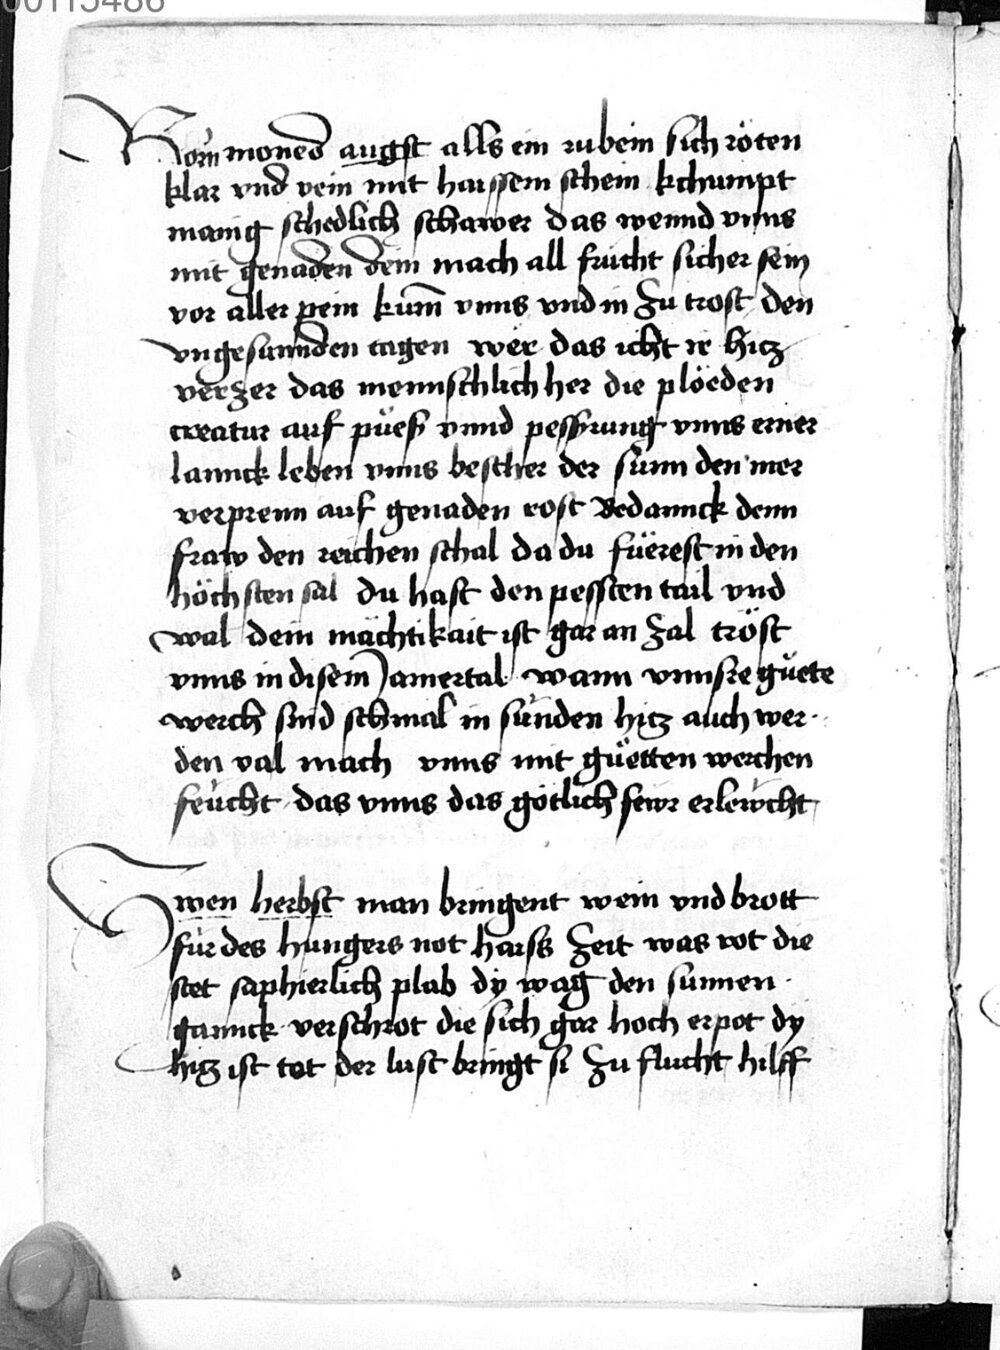 00115486
Rom moned augst alls ein rubein sich röten
klar vnd rein mit haissem schein kchumpt
manig schedlich schawer das wennd vnns
mit genaden dein mach all frucht sicher sein
vor aller pein kum̄ vnns vnd in zu trost den
vngesunnden tagen wer das icht ir hitz
verzer das mennschlich her die plöeden
creatur auf püeß vnnd pessrung vnns einer
lannck leben vnns bescher der sunn den mer
verprenn auf genaden rost Bedannck denn
fraw den reichen schal da du füerest in den
höchsten sal du hast den pessten tail vnd
wal dein mächtikait ist gar an zal tröst
vnns in disem Jamertal wann vnnsre güete
werch sind schmal in sünden hitz auch wer
den val mach vnns mit güetten werchen
feücht das vnns das götlich fewr erlewcht
Zwen herbst man bringent wein vnd brott
für des hungers not haiss zeit was rot die
stet saphierlich plab dÿ wag den sunnen
gannck verschrot die sich gar hoch erpot dÿ
hitz ist tot der lust bringt si zu flucht hilff